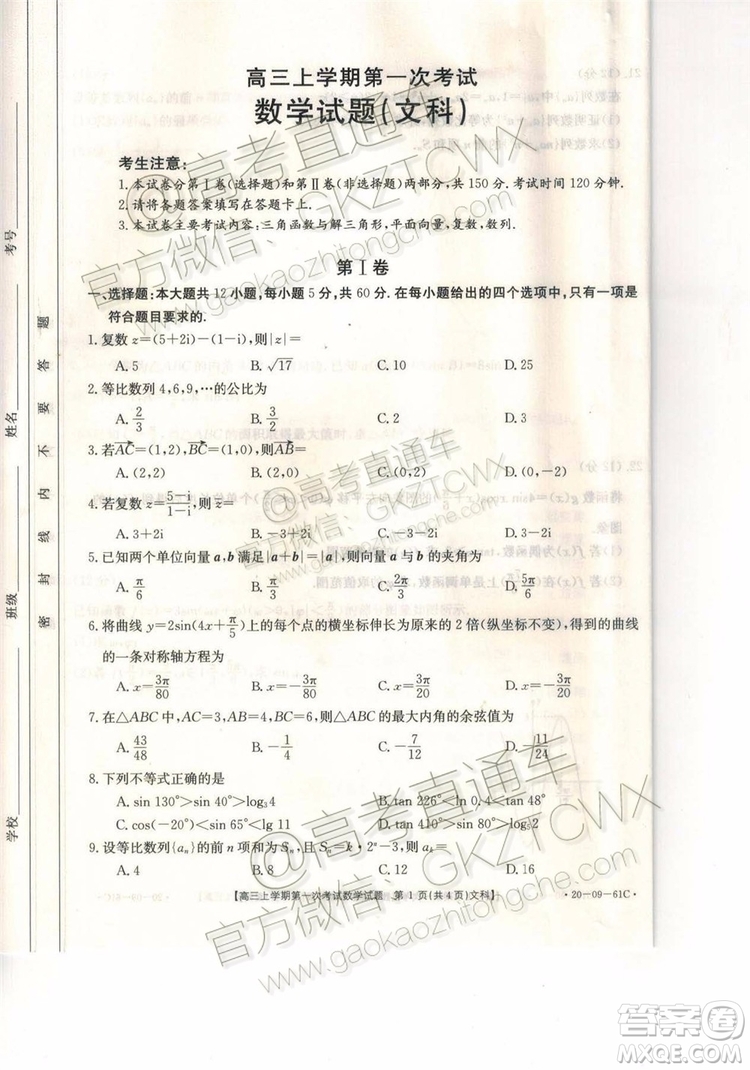 高三上学期第一次考试
数学试题(文科)
考生注意:
1.本试卷分第Ⅰ卷(选择题)和第Ⅱ卷(非选择题)两部分,共 150 分.考试时间 120 分钟.
2.请将各题答案填写在答题卡上.
3.本试卷主要考试内容:三角函数与解三角形,平面向量,复数,数列.
第Ⅰ卷
一、选择题:本大题共 12 小题,每小题 5 分,共 60 分.在每小题给出的四个选项中,只有一项是
符合题目要求的.
1.复数 z=(5+2i)-(1-i),则|z|=
A.5 B.√17 C.10 D.25
2.等比数列 4,6,9,…的公比为
A.2/3 B.3/2 C.2 D.3
3.若AC=(1,2),BC=(1,0),则AB=
A.(2,2) B.(2,0) C.(0,2) D.(0,-2)
4.若复数 z=(5-i)/(1-i),则 z=
A.3+2i B.-3+2i C.-3-2i D.3-2i
5.已知两个单位向量 a,b 满足|a+b|=|a|,则向量 a 与 b 的夹角为
A.π/6 B.π/3 C.2π/3 D.5π/6
6.将曲线 y=2sin(4x+π/5)上的每个点的横坐标伸长为原来的 2 倍(纵坐标不变),得到的曲线
的一条对称轴方程为
A.x=3π/80 B.x=-3π/80 C.x=3π/20 D.x=-3π/20
7.在△ABC 中,AC=3,AB=4,BC=6,则△ABC 的最大内角的余弦值为
A.43/48 B.-1/4 C.-7/12 D.-11/24
8.下列不等式正确的是
A.sin 130°>sin 40°>log₃4 B.tan 226°<ln 4<tan 48°
C.cos(-20°)<sin 65°<lg 11 D.tan 410°>sin 80°>log₅2
9.设等比数列{aₙ}的前 n 项和为 Sₙ,且 Sₙ=k·2ⁿ-3,则 aₖ=
A.4 B.8 C.12 D.16
【高三上学期第一次考试数学试题 第 1 页(共 4 页)文科】
·20-09-61C·
学校
班级
姓名
考号
密 封 线 内 不 要 答 题
@高考直通车
官方微信:GKZTCWX
www.gaokaozhitongche.com
@高考直通车
官方微信:GKZTCWX
@高考直通车
官方微信:GKZTCWX
www.gaokaozhitongche.com
答案圈
MXQE.COM